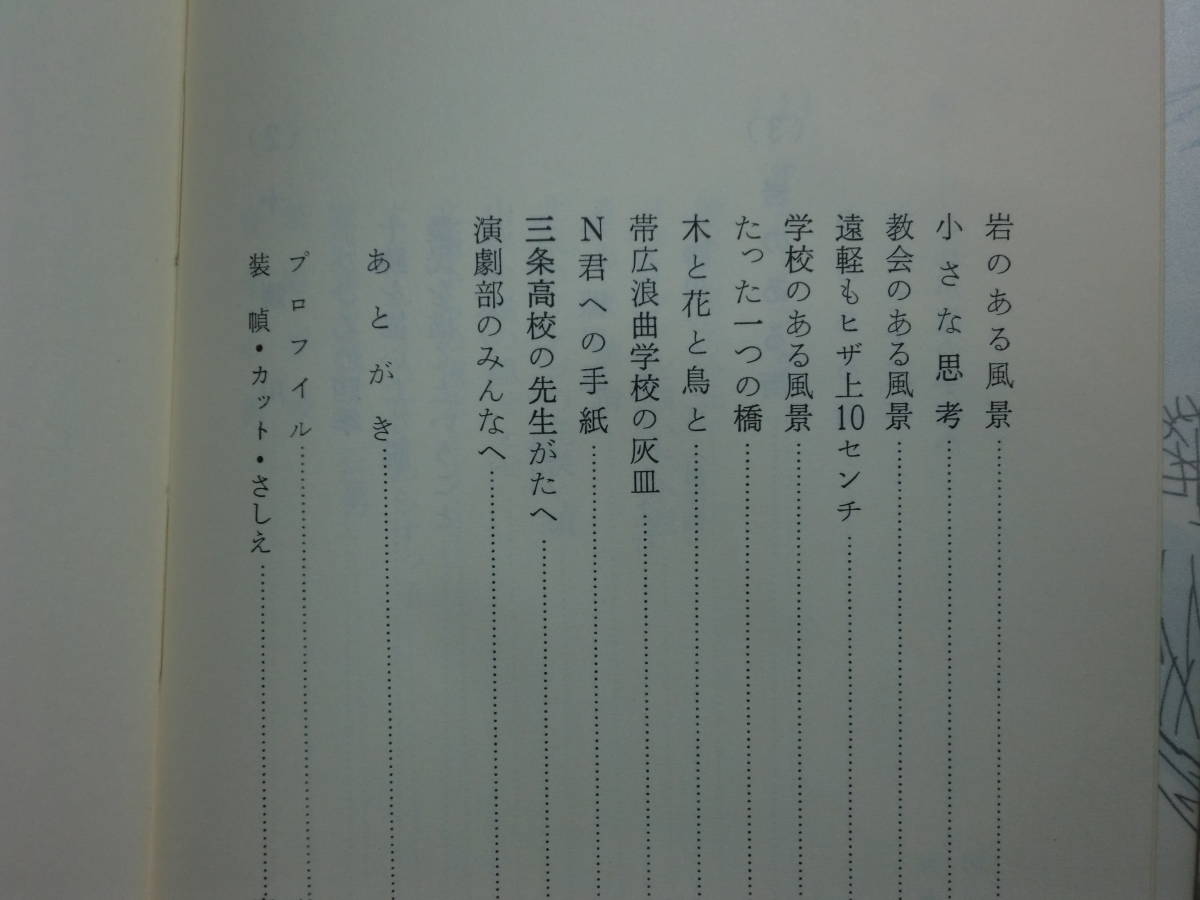 岩のある風景
小さな思考
教会のある風景
遠軽もヒザ上10センチ
学校のある風景
たった一つの橋
木と花と鳥と
帯広浪曲学校の灰皿
N君への手紙
三条高校の先生がたへ
演劇部のみんなへ
あとがき
プロフイル
装幀・カット・さしえ